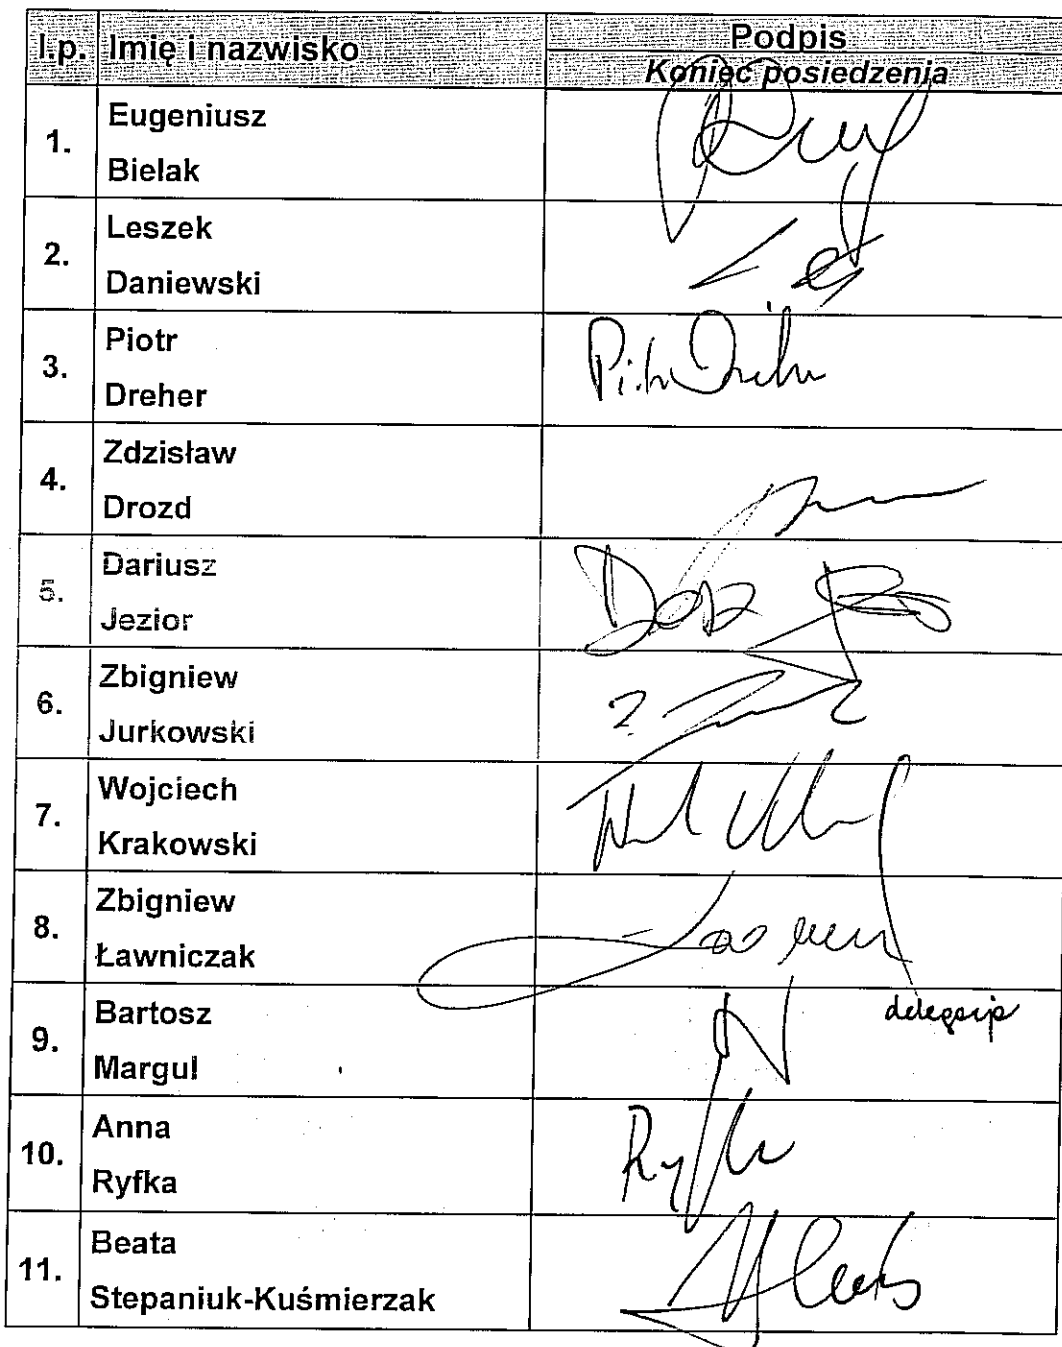 l.p. Imię i nazwisko Podpis
Koniec posiedzenia
1. Eugeniusz
Bielak
2. Leszek
Daniewski
3. Piotr
Dreher
4. Zdzisław
Drozd
5. Dariusz
Jezior
6. Zbigniew
Jurkowski
7. Wojciech
Krakowski
8. Zbigniew
Ławniczak
9. Bartosz
Margul
10. Anna
Ryfka
Ryfka
11. Beata
Stepaniuk-Kuśmierzak